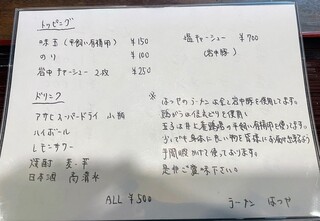 トッピング
味玉(平飼い有精卵) ¥150
のり ¥100
岩中チャーシュー 2枚 ¥250
塩チャーシュー ¥700
(岩中豚)
ドリンク
アサヒスーパードライ 小瓶
ハイボール
レモンサワー
焼酎 麦・芋
日本酒 高清水
ALL ¥500
※ はつやのラーメンは全て岩中豚を使用してます。
鶏がらは信玄どりを使用し
玉子は井上養鶏場の平飼い有精卵を使ってます。
少しでも身体に良い物を皆様にお届け出来るよう
手間暇かけて使っております。
是非ご賞味下さい。
ラーメン はつや